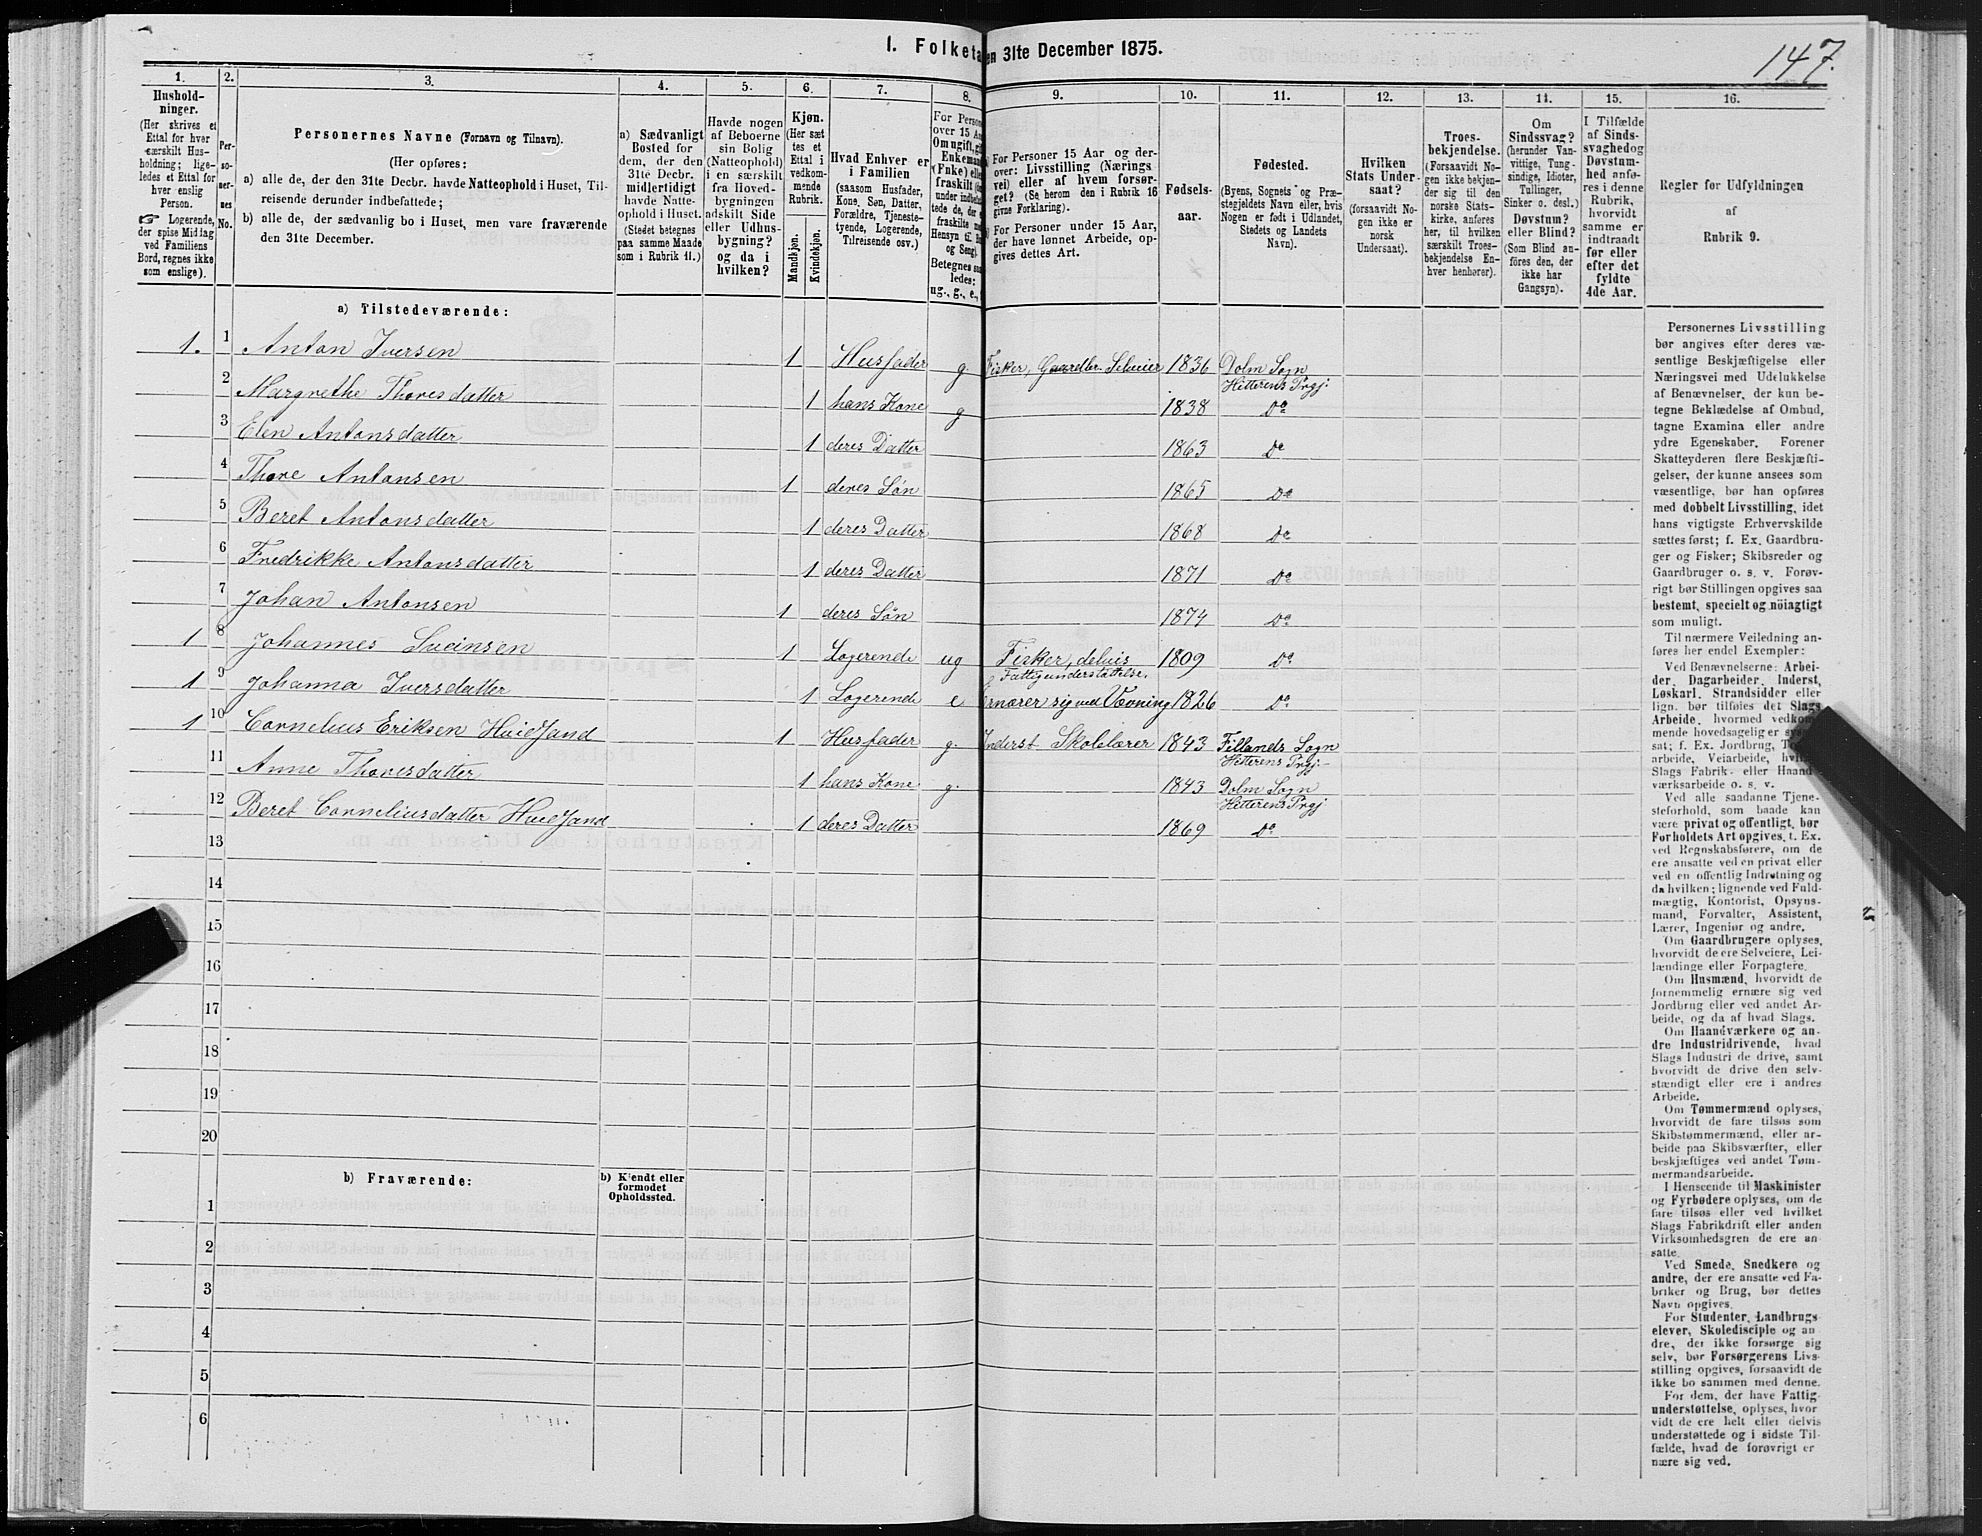 I. Folketæ
en 31te December 1875.
147.
1.
2.
3.
4.
5.
6.
7.
8.
9.
10.
11.
12.
13.
14.
15.
16.
Hushold-
ninger.
(Her skrives et
Ettal for hver
særskilt Hus-
holdning; lige-
ledes et Ettal for
hver enslig
Person.
☞ Logerende,
der spise Middag
ved Familiens
Bord, regnes ikke
som enslige).
Per-
so-
ner-
nes
No.
Personernes Navne (Fornavn og Tilnavn).
(Her opføres:
a) alle de, der den 31te Decbr. havde Natteophold i Huset, Til-
reisende derunder indbefattede;
b) alle de, der sædvanlig bo i Huset, men vare fraværende
den 31te December.
a) Sædvanligt
Bosted for
dem, der den
31te Decbr.
midlertidigt
havde Natte-
ophold i Huset.
(Stedet betegnes
paa samme Maade
som i Rubrik 11.)
Havde nogen
af Beboerne
sin Bolig
(Natteophold)
i en særskilt
fra Hoved-
bygningen
adskilt Side
eller Udhus-
bygning?
og da i
hvilken?
Kjøn.
(Her sæt
tes et
Ettal i
vedkom-
mende
Rubrik.
Mandkjøn.
Kvindekjøn.
Hvad Enhver er
i Familien
(saasom Husfader,
Kone, Søn, Datter,
Forældre, Tjeneste-
tyende, Logerende,
Tilreisende osv.)
For Person
over 15 Aa
Om ugift, gif
Enkemand
(Enke) elle
fraskilt
under indb
tede de, der e
fraskilte m
Hensyn til B
og Seng).
Betegnes sa
ledes:
ug., g., e.,
For Personer 15 Aar og der-
over: Livsstilling (Nærings
vei) eller af hvem forsør-
get? (Se herom den i Rubrik 16
givne Forklaring).
For Personer under 15 Aar,
der have lønnet Arbeide, op-
gives dettes Art.
Fødsels-
aar.
Fødested.
(Byens, Sognets og Præ-
stegjeldets Navn eller, hvis
Nogen er født i Udlandet,
Stedets og Landets
Navn).
Hvilken
Stats Under-
saat?
(forsaavidt No-
gen ikke er
norsk
Undersaat).
Troes-
bekjendelse.
(Forsaavidt No-
gen ikke bekjen-
der sig til den
norske Stats-
kirke, anføres
her, til hvilken
særskilt Troes-
bekjendelse En-
hver henhører).
Om
Sindssvag?
(herunder Van-
vittige, Tung-
sindige, Idioter,
Tullinger,
Sinker o. desl.)
Døvstum?
eller Blind?
(Som Blind an-
føres den, der
ikke har
Gangsyn).
I Tilfælde
af Sinds-
svaghed og
Døvstum-
hed anfø-
res i denne
Rubrik,
hvorvidt
samme er
indtraadt
før eller
efter det
fyldte
4de Aar.
Regler før Udfyldningen
af
Rubrik 9.
a) Tilstedeværende:
1. 1 Anton Iversen 1 Husfader g. Fisker, Gaardbr. Selveier 1836 Dolm Sogn
Hitterens Prgj.
2 Margrethe Thoresdatter 1 hans Kone g 1838 Do
3 Elen Antonsdatter 1 deres Datter 1863 Do
4 Thore Antonsen 1 deres Søn 1865 Do
5 Beret Antonsdatter 1 deres Datter 1868 Do
6 Fredrikke Antonsdatter 1 deres Datter 1871 Do
7 Johan Antonsen 1 deres Søn 1874 Do
1 8 Johannes Sveinsen 1 Logerende ug Fisker, delvis 1809 Do
Fattigunderstøttelse.
1 9 Johanna Iversdatter 1 Logerende e Ernærer sig med Vævning 1826 Do
1 10 Cornelius Eriksen Hvidsand 1 Husfader g. Inderst Skolelærer 1843 Fillands Sogn
Hitterens Prgj.
11 Anne Thoresdatter 1 hans Kone g. 1843 Dolm Sogn
Hitterens Prgj
12 Beret Corneliusdatter Hvidsand 1 deres Datter 1869 Do
13
14
15
16
17
18
19
20
b) Fraværende:
b) Kjendt eller
formodet
Opholdssted.
1
2
3
4
5
6
Personernes Livsstilling
bør angives efter deres væ-
sentlige Beskjæftigelse eller
Næringsvei med Udelukkelse
af Benævnelser, der kun be-
tegne Beklædelse af Ombud,
tagne Examina eller andre
ydre Egenskaber. Forener
Skatteyderen flere Beskjæfti-
gelser, der kunne ansees som
væsentlige, bør han opføres
med dobbelt Livsstilling, idet
hans vigtigste Erhvervskilde
sættes først; f. Ex. Gaardbru-
ger og Fisker; Skibsreder og
Gaardbruger o. s. v. Forøv-
rigt bør Stillingen opgives saa
bestemt, specielt og nøiagtigt
som muligt.
Til nærmere Veiledning an-
føres her endel Exempler:
Ved Benævnelserne: Arbei-
der, Dagarbeider, Inderst,
Løskarl, Strandsidder eller
lign. bør tilføies det Slags
Arbeide, hvormed vedkom-
mende hovedsagelig er sys
sat; f. Ex. Jordbrug, T
arbeide, Veiarbeide, hvil
Slags Fabrik- eller Haand-
værksarbeide o. s. v.
Ved alle saadanne Tjene-
steforhold, som baade kan
være privat og offentligt, bør
Forholdets Art opgives, t. Ex.
ved Regnskabsførere, om de
ere ansatte ved en privat eller
ved en offentlig Indretning og
da hvilken; lignende ved Fuld-
mægtig, Kontorist, Opsyns-
mand, Forvalter, Assistent,
Lærer, Ingeniør og andre.
Om Gaardbrugere oplyses,
hvorvidt de ere Selveiere, Lei-
lændinge eller Forpagtere.
Om Husmænd, hvorvidt de
fornemmelig ernære sig ved
Jordbrug eller ved andet Ar-
beide, og da af hvad Slags.
Om Haandværkere og an-
dre Industridrivende, hvad
Slags Industri de drive, samt
hvorvidt de drive den selv-
stændigt eller ere i andres
Arbeide.
Om Tømmermænd oplyses,
hvorvidt de fare tilsøs som
Skibstømmermænd, eller ar-
beide paa Skibsværfter, eller
beskjæftiges ved andet Tøm-
mermandsarbeide.
I Henseende til Maskinister
og Fyrbødere oplyses, om de
fare tilsøs eller ved hvilket
Slags Fabrikdrift eller anden
Virksomhedsgren de ere an-
satte.
Ved Smede, Snedkere og
andre, der ere ansatte ved Fa-
briker og Brug, bør dettes
Navn opgives.
For Studenter, Landbrugs-
elever, Skoledisciple og an-
dre, der ikke forsørge sig
selv, bør Forsørgerens Livs-
stilling opgives, forsaavidt de
ikke bo sammen med denne.
For dem, der have Fattig-
understøttelse, oplyses, hvor
vidt de ere helt eller delvis
understøttede og i sidste Til-
fælde, hvad de forøvrigt er
nære sig ved.